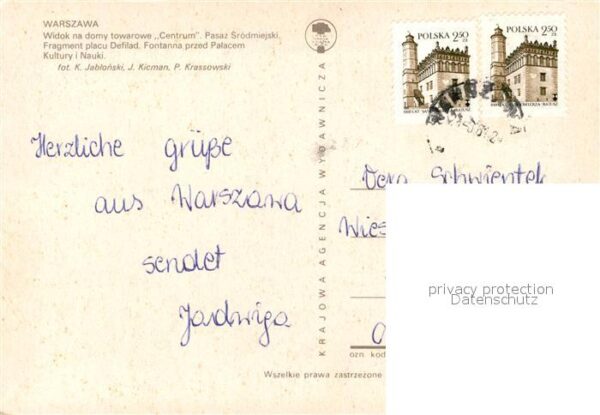 WARSZAWA
Widok na domy towarowe „Centrum”. Pasaż Śródmiejski.
Fragment placu Defilad. Fontanna przed Pałacem
Kultury i Nauki.
fot. K. Jabłoński, J. Kicman, P. Krassowski
POLSKA 2,50 zł
POLSKA 2,50 zł
Herzliche grüße
aus Warszawa
sendet
Jadwiga
KRAJOWA AGENCJA WYDAWNICZA
Dora Schwientek
Wies
privacy protection
Datenschutz
ozn kod
Wszelkie prawa zastrzeżone